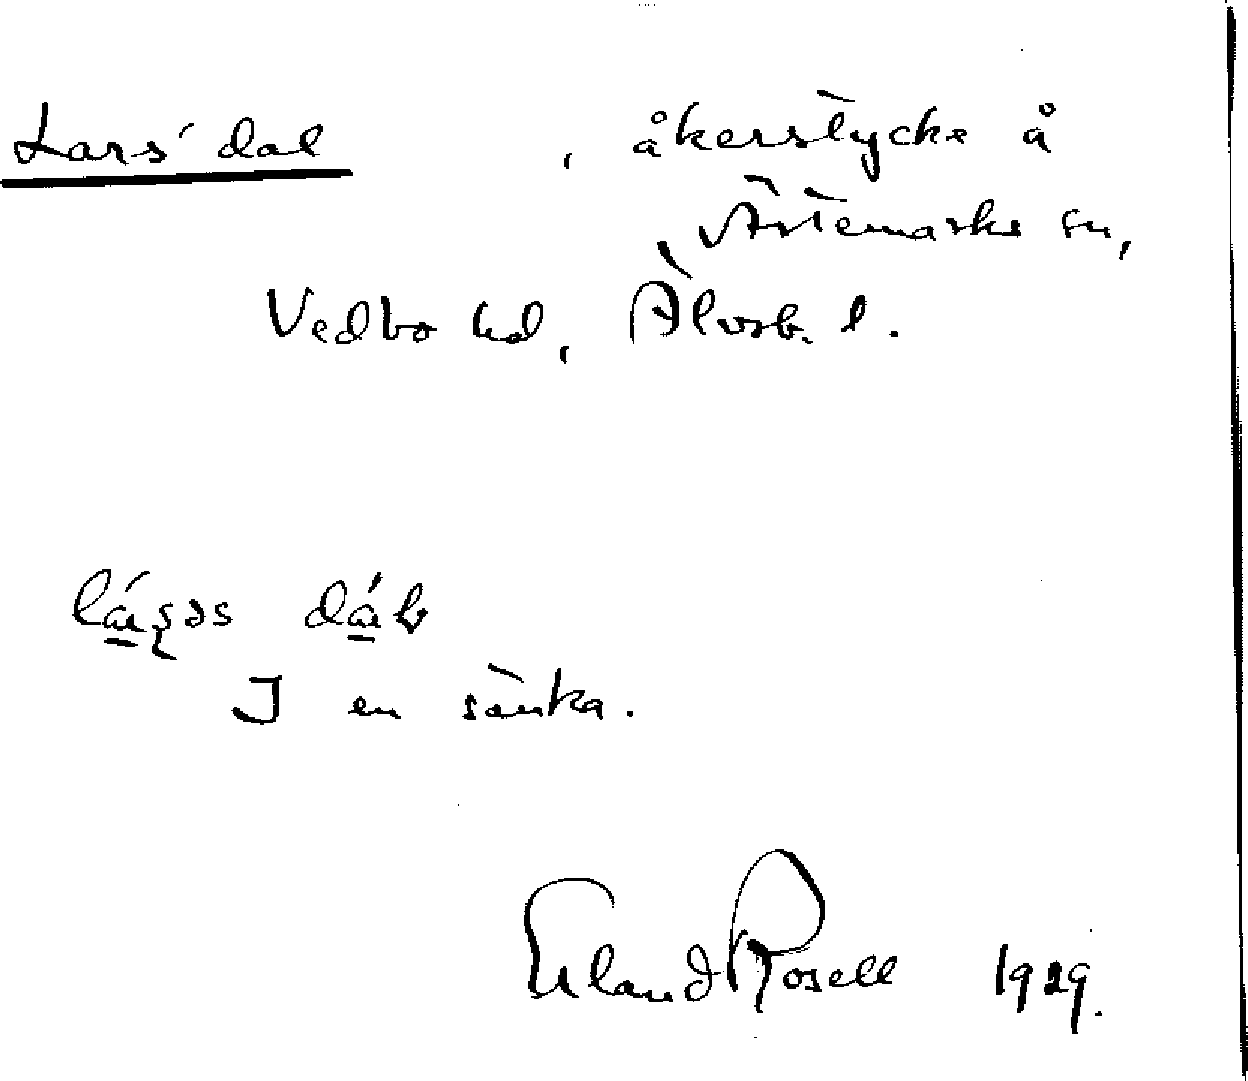 Lars' dal , åkerstycke å
Ärtemarks sn,
Vedbo hd, Älvsb. l.
dál
I en sänka.
Erland Rosell 1929.